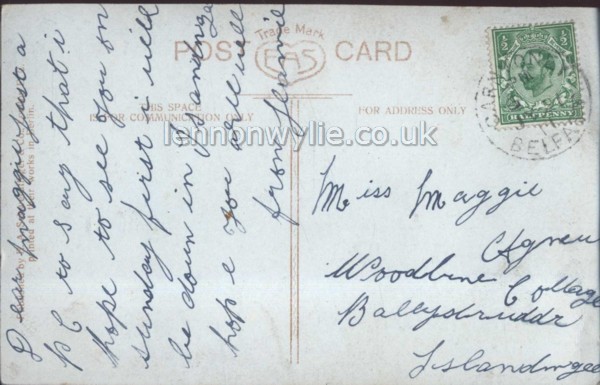 Trade Mark
POST CARD
EAS
THIS SPACE
IS FOR COMMUNICATION ONLY
FOR ADDRESS ONLY
lennonwylie.co.uk
HALFPENNY
BELFAST
Dear Maggie Just a
PC to say that i
hope to see you on
sunday first i will
be down in
hope you are well
from
Miss Maggie
Agnew
Woodbine Cottage
Ballystruddr
Islandmgee